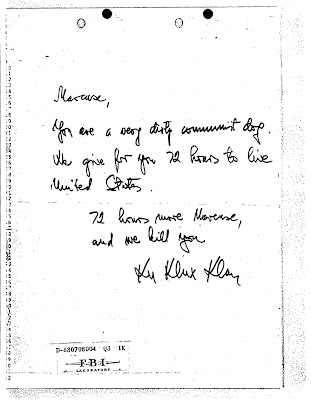 Marcuse,
You are a very dirty communist dog.
We give for you 72 hours to live
United States.
72 hours more Marcuse,
and we kill you
Ku Klux Klan
D-680708004 Q3 1K
FBI
LABORATORY